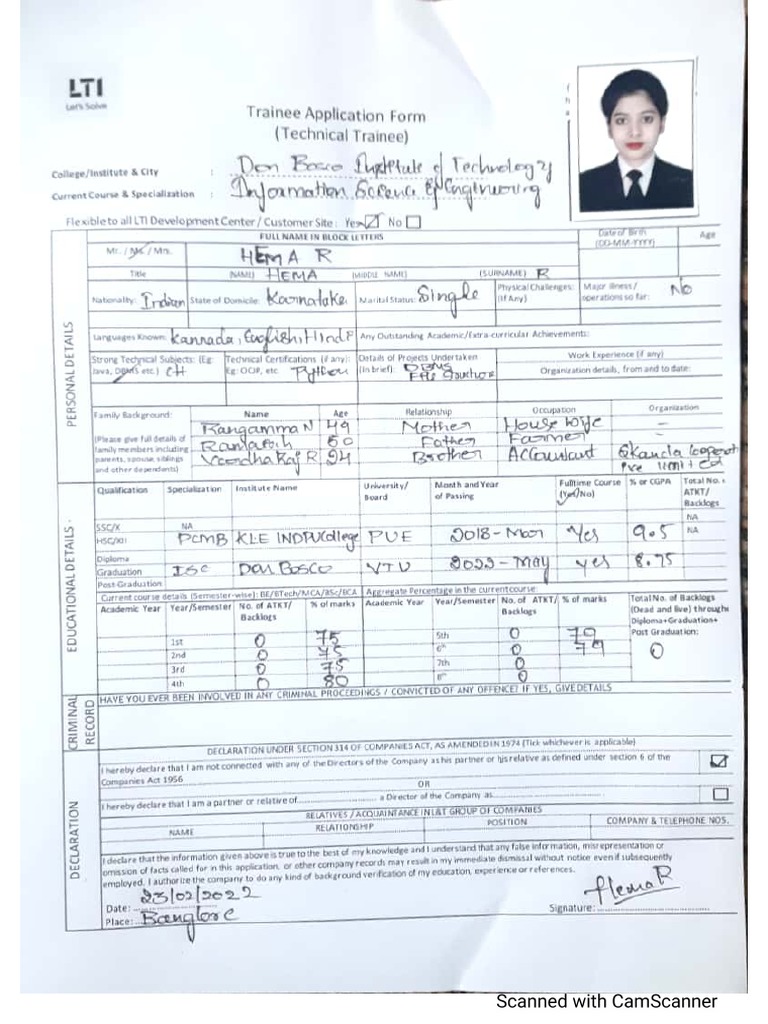 LTI
Let's Solve
Trainee Application Form
(Technical Trainee)
College/Institute & City : Don Bosco Institute of Technology
Current Course & Specialization : Information Science & Engineering
Flexible to all LTI Development Center / Customer Site: Yes No
FULL NAME IN BLOCK LETTERS
Date of Birth (DD-MM-YYYY)
Age
Mr. / Ms / Mrs. HEMA R
Title (NAME) HEMA (MIDDLE NAME) (SURNAME) R
Nationality: Indian State of Domicile: Karnataka Marital Status: Single Physical Challenges: (If Any) Major illness / operations so far: No
Languages Known: Kannada, English, Hindi Any Outstanding Academic/Extra-curricular Achievements:
Strong Technical Subjects: (Eg Java, DBMS etc.)
Technical Certifications (if any): Eg: OCJP, etc. Python
Details of Projects Undertaken (in brief): DBMS
Work Experience (if any)
Organization details, from and to date:
PERSONAL DETAILS
Family Background: Name Age Relationship Occupation Organization
(Please give full details of family members including parents, spouse, siblings and other dependents)
Rangamma N 49 Mother House wife -
50 Father Farmer -
R 24 Brother Accountant
EDUCATIONAL DETAILS
Qualification Specialization Institute Name University/ Board Month and Year of Passing Fulltime Course (Yes/No) % or CGPA Total No. of ATKT/ Backlogs
SSC/X NA NA
HSC/XII PCMB KLE IND PU College PUE 2018-Mar Yes 9.05 NA
Diploma
Graduation ISC Don Bosco VTU 2022-May yes 8.75
Post Graduation
Current course details (Semester-wise): BE/BTech/MCA/BSc/BCA Aggregate Percentage in the current course:
Academic Year Year/Semester No. of ATKT/ Backlogs % of marks Academic Year Year/Semester No. of ATKT/ Backlogs % of marks Total No. of Backlogs (Dead and live) through: Diploma+Graduation+ Post Graduation:
1st 0 75 5th 0 79
2nd 0 75 6th 0 79 0
3rd 0 75 7th 0
4th 0 80 8th 0
CRIMINAL RECORD
HAVE YOU EVER BEEN INVOLVED IN ANY CRIMINAL PROCEEDINGS / CONVICTED OF ANY OFFENCE? IF YES, GIVE DETAILS
DECLARATION
DECLARATION UNDER SECTION 314 OF COMPANIES ACT, AS AMENDED IN 1974 (Tick whichever is applicable)
I hereby declare that I am not connected with any of the Directors of the Company as his partner or his relative as defined under section 6 of the
Companies Act 1956
OR
I hereby declare that I am a partner or relative of a Director of the Company as
RELATIVES / ACQUAINTANCE IN L&T GROUP OF COMPANIES
NAME RELATIONSHIP POSITION COMPANY & TELEPHONE NOS.
I declare that the information given above is true to the best of my knowledge and I understand that any false information, misrepresentation or
omission of facts called for in this application, or other company records may result in my immediate dismissal without notice even if subsequently
employed. I authorize the company to do any kind of background verification of my education, experience or references.
Date: 23/02/2022
Place: Banglore
Signature: Hema R
Scanned with CamScanner